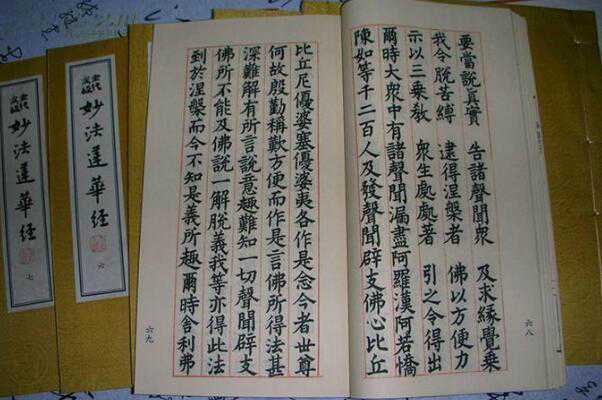 要當說真實 告諸聲聞衆 及求緣覺乘
我令脫苦縛 逮得涅槃者 佛以方便力
示以三乘教 衆生處處著 引之令得出
爾時大衆中有諸聲聞漏盡阿羅漢阿若憍
陳如等千二百人及發聲聞辟支佛心比丘
六八
比丘尼優婆塞優婆夷各作是念今者世尊
何故殷勤稱歎方便而作是言佛所得法甚
深難解有所言說意趣難知一切聲聞辟支
佛所不能及佛說一解脫義我等亦得此法
到於涅槃而今不知是義所趣爾時舍利弗
六九
妙法蓮華經
六
妙法蓮華經
七